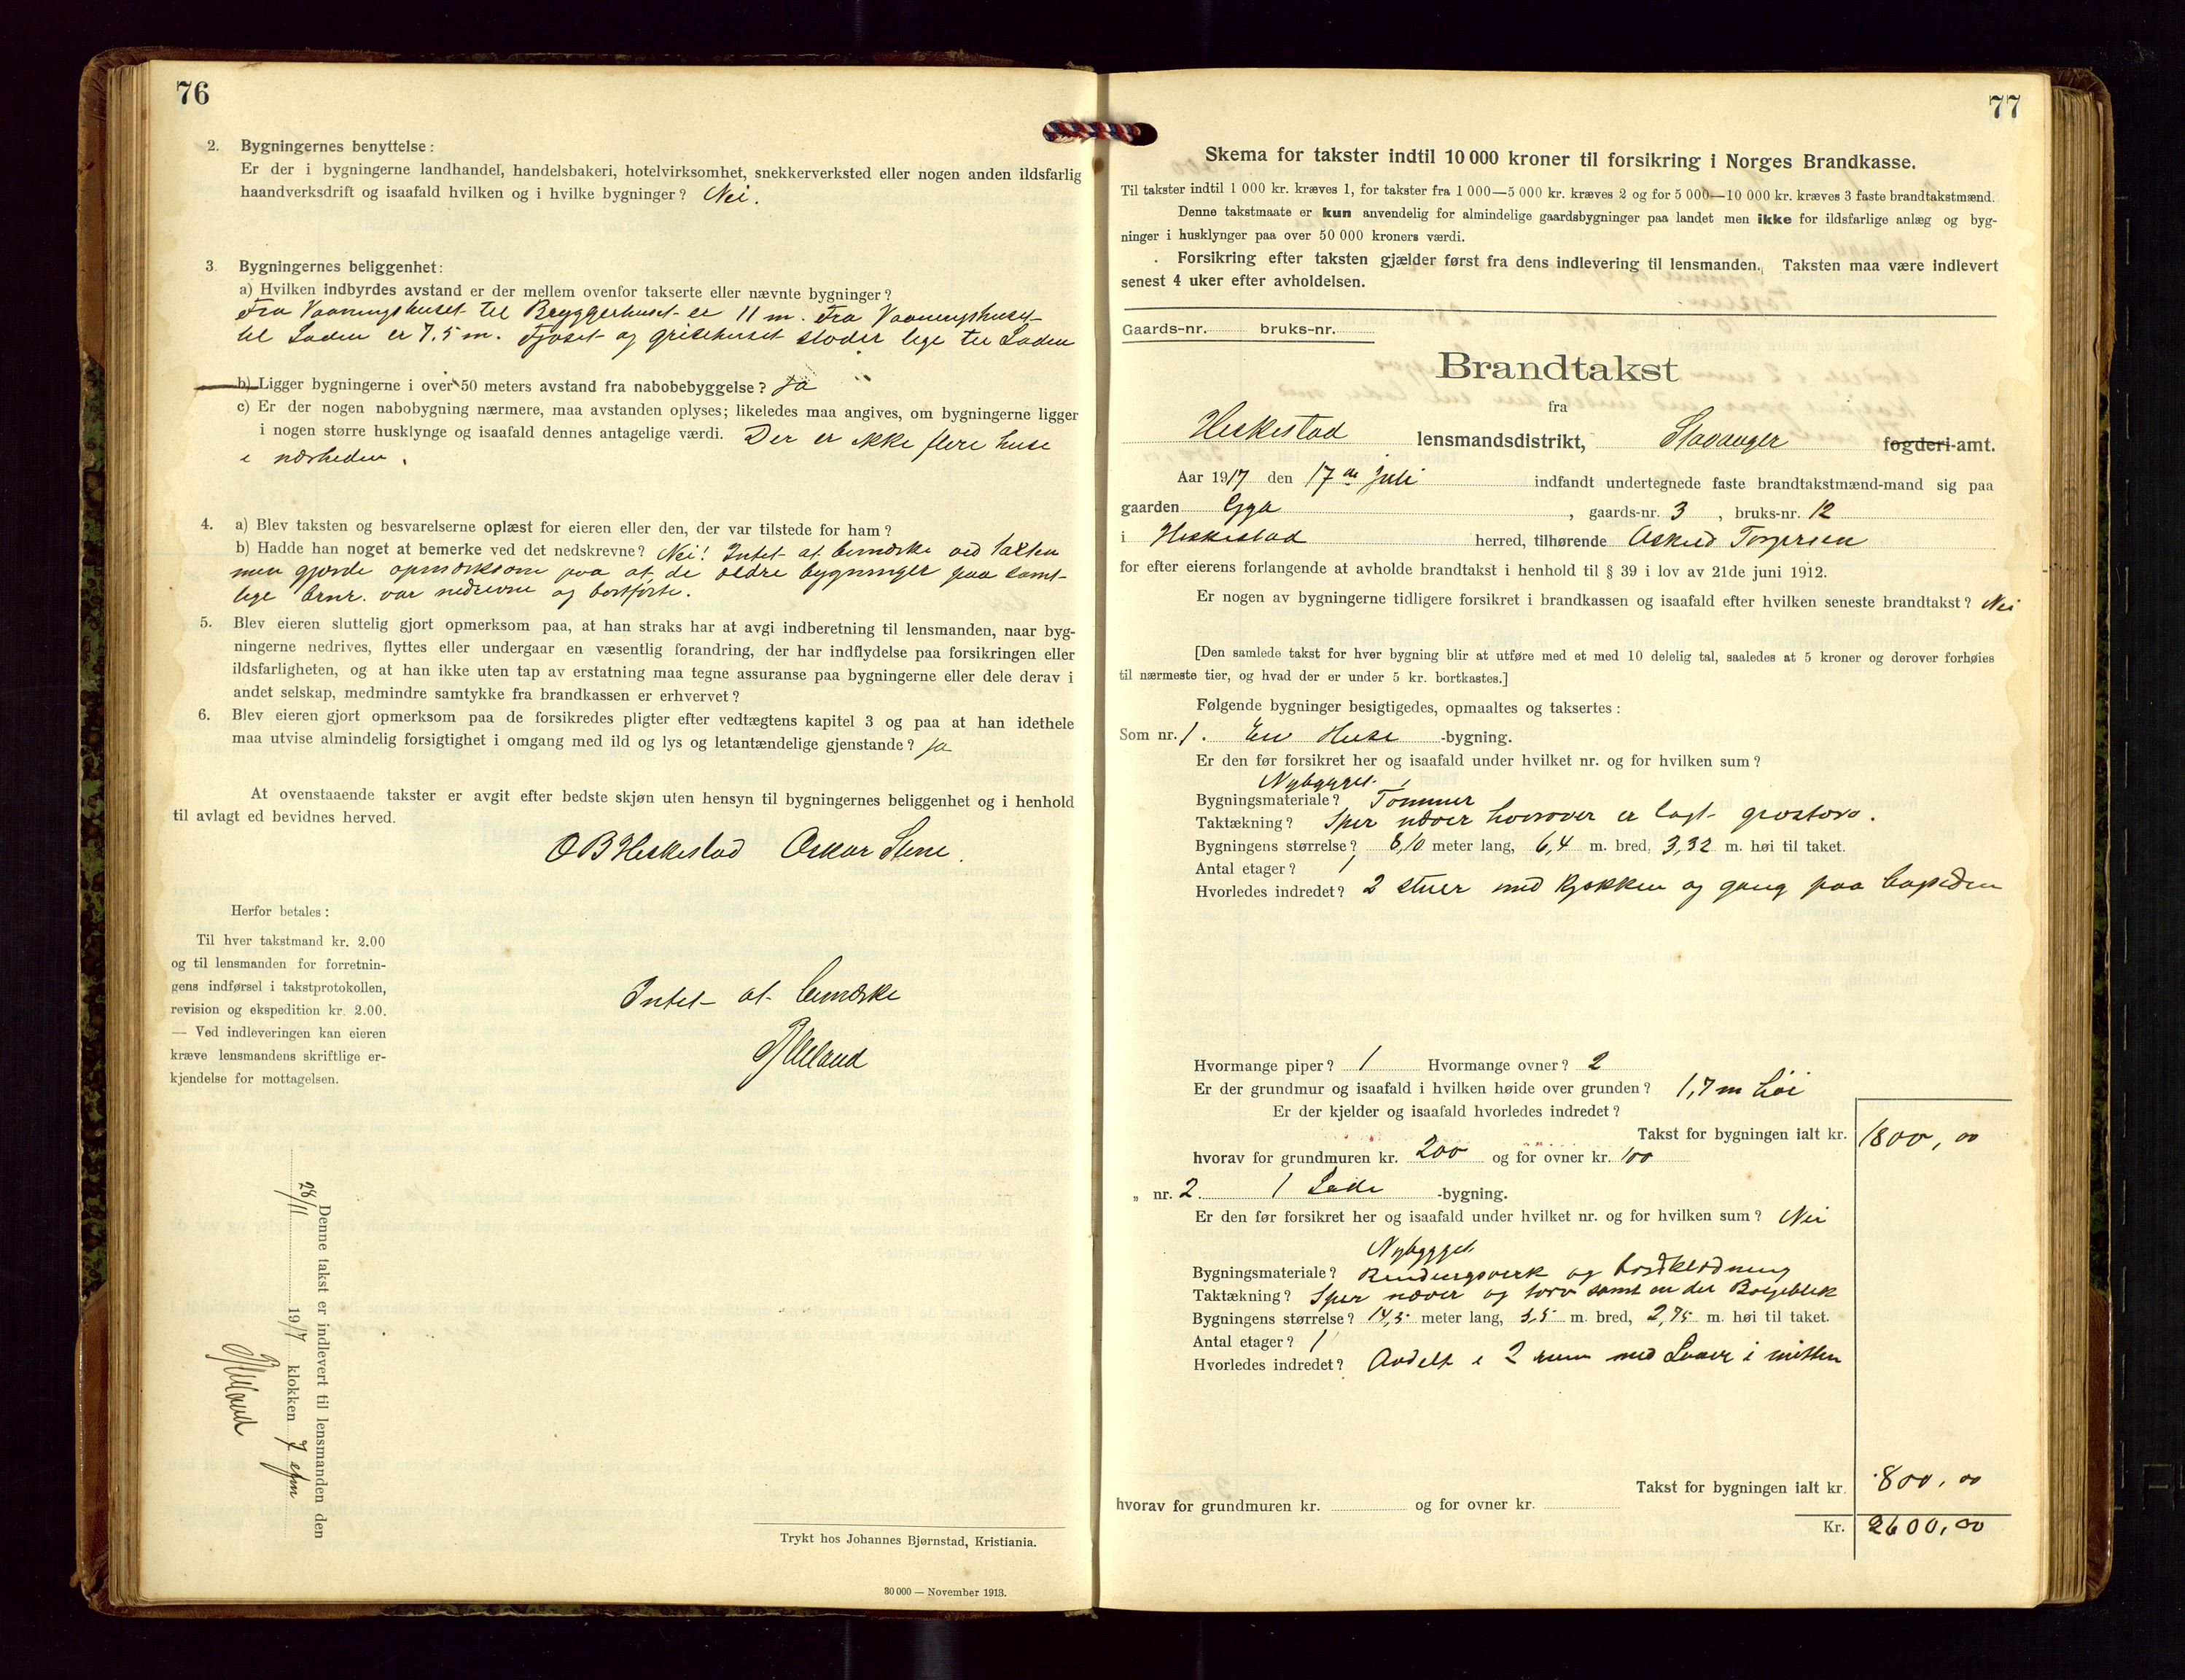 76
2. Bygningernes benyttelse:
Er der i bygningerne landhandel, handelsbakeri, hotelvirksomhet, snekkerverksted eller nogen anden ildsfarlig
haandverksdrift og isaafald hvilken og i hvilke bygninger? Nei.
3. Bygningernes beliggenhet:
a) Hvilken indbyrdes avstand er der mellem ovenfor takserte eller nævnte bygninger?
Fra Vaaningshuset til Bryggerhuset er 11 m. Fra Vaaningshuset
til Laden er 7,5 m. Fjøset og grisehuset støder lige til Laden
b) Ligger bygningerne i over 50 meters avstand fra nabobebyggelse? Ja
c) Er der nogen nabobygning nærmere, maa avstanden oplyses; likeledes maa angives, om bygningerne ligger
i nogen større husklynge og isaafald dennes antagelige værdi. Der er ikke flere huse
i nærheden.
4. a) Blev taksten og besvarelserne oplæst for eieren eller den, der var tilstede for ham?
b) Hadde han noget at bemerke ved det nedskrevne? Nei! Intet at bemærke ved taxten
men gjorde opmærksom paa at de ældre bygninger paa samt-
lige brnr. var nedrevne og bortførte.
5. Blev eieren sluttelig gjort opmerksom paa, at han straks har at avgi indberetning til lensmanden, naar byg-
ningerne nedrives, flyttes eller undergaar en væsentlig forandring, der har indflydelse paa forsikringen eller
ildsfarligheten, og at han ikke uten tap av erstatning maa tegne assuranse paa bygningerne eller dele derav i
andet selskap, medmindre samtykke fra brandkassen er erhvervet?
6. Blev eieren gjort opmerksom paa de forsikredes pligter efter vedtægtens kapitel 3 og paa at han idethele
maa utvise almindelig forsigtighet i omgang med ild og lys og letantændelige gjenstande? Ja
At ovenstaaende takster er avgit efter bedste skjøn uten hensyn til bygningernes beliggenhet og i henhold
til avlagt ed bevidnes herved.
O B Heskestad Oskar Stene.
Herfor betales:
Til hver takstmand kr. 2.00
og til lensmanden for forretnin-
gens indførsel i takstprotokollen,
revision og ekspedition kr. 2.00.
— Ved indleveringen kan eieren
kræve lensmandens skriftlige er-
kjendelse for mottagelsen.
Intet at bemærke
Denne takst er indlevert til lensmanden den
28/11 1917 klokken 7 efm
Trykt hos Johannes Bjørnstad, Kristiania.
30 000 — November 1913.
77
Skema for takster indtil 10 000 kroner til forsikring i Norges Brandkasse.
Til takster indtil 1 000 kr. kræves 1, for takster fra 1 000—5 000 kr. kræves 2 og for 5 000—10 000 kr. kræves 3 faste brandtakstmænd.
Denne takstmaate er kun anvendelig for almindelige gaardsbygninger paa landet men ikke for ildsfarlige anlæg og byg-
ninger i husklynger paa over 50 000 kroners værdi.
Forsikring efter taksten gjælder først fra dens indlevering til lensmanden. Taksten maa være indlevert
senest 4 uker efter avholdelsen.
Gaards-nr. bruks-nr.
Brandtakst
fra
Heskestad lensmandsdistrikt, Stavanger fogderi-amt.
Aar 1917 den 17de Juli indfandt undertegnede faste brandtakstmænd-mand sig paa
gaarden Egga, gaards-nr. 3, bruks-nr. 12
i Heskestad herred, tilhørende Torgersen
for efter eierens forlangende at avholde brandtakst i henhold til § 39 i lov av 21de juni 1912.
Er nogen av bygningerne tidligere forsikret i brandkassen og isaafald efter hvilken seneste brandtakst? Nei
[Den samlede takst for hver bygning blir at utføre med et med 10 delelig tal, saaledes at 5 kroner og derover forhøies
til nærmeste tier, og hvad der er under 5 kr. bortkastes.]
Følgende bygninger besigtigedes, opmaaltes og taksertes:
Som nr. 1. En Huse -bygning.
Er den før forsikret her og isaafald under hvilket nr. og for hvilken sum?
Nybygget
Bygningsmateriale? Tømmer
Taktækning? Sper næver hvorover er lagt græstorv.
Bygningens størrelse? 8,10 meter lang, 6,4 m. bred, 3,32 m. høi til taket.
Antal etager? 1
Hvorledes indredet? 2 stuer med Kjøkken og gang paa bagsiden
Hvormange piper? 1 Hvormange ovner? 2
Er der grundmur og isaafald i hvilken høide over grunden? 1,7 m høi
Er der kjelder og isaafald hvorledes indredet?
Takst for bygningen ialt kr. 1800,00
hvorav for grundmuren kr. 200 og for ovner kr. 100
„ nr. 2. 1 Lade -bygning.
Er den før forsikret her og isaafald under hvilket nr. og for hvilken sum? Nei
Nybygget
Bygningsmateriale? Bindingsverk og bordklædning
Taktækning? Sper næver og torv samt en del Bølgeblik
Bygningens størrelse? 14,5 meter lang, 5,5 m. bred, 2,75 m. høi til taket.
Antal etager? 1
Hvorledes indredet? Avdelt i 2 rum med Laave i mitten
Takst for bygningen ialt kr. 800,00
hvorav for grundmuren kr. og for ovner kr.
Kr. 2600,00